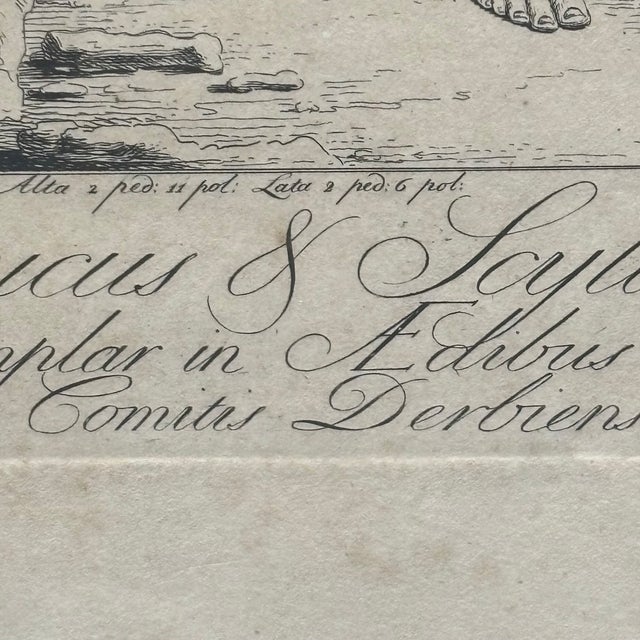 Alta 2 ped: 11 pol: Lata 2 ped: 6 pol:
ucus & Scyl
mplar in Ædibus
Comitis Derbiens